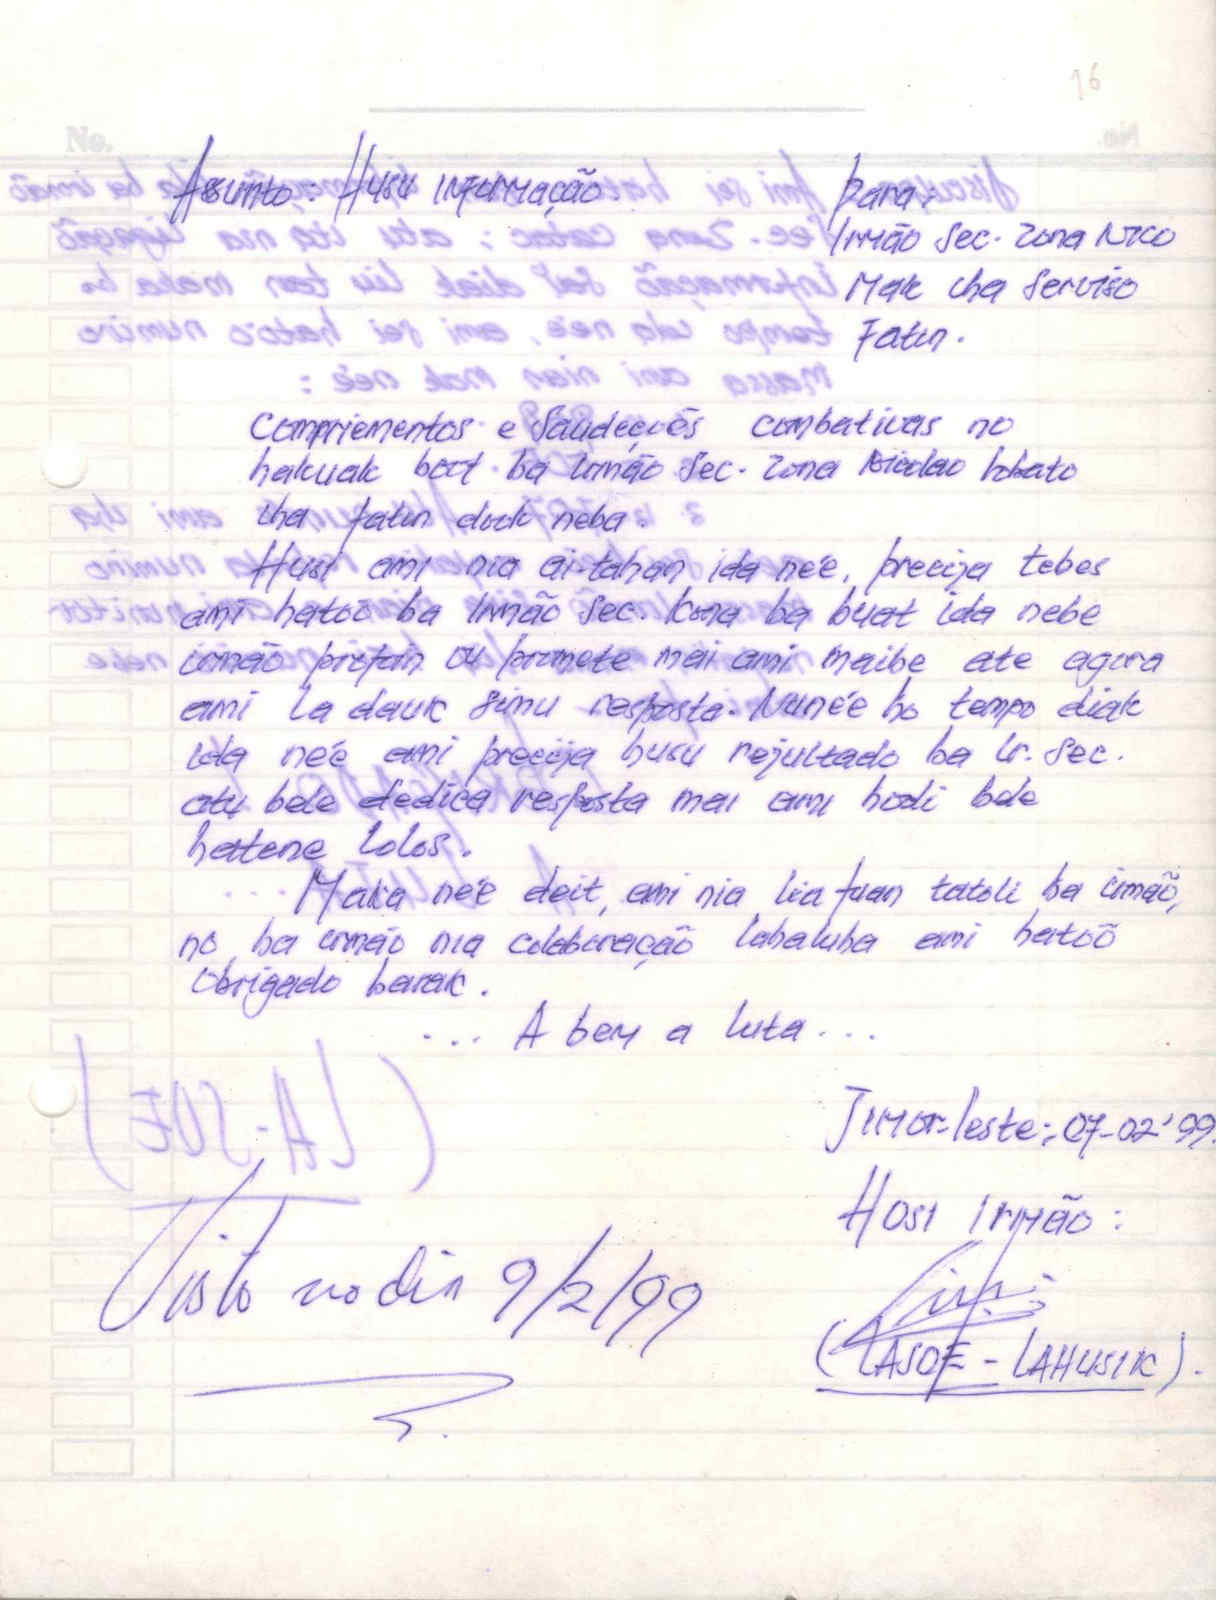 16
No.
Assunto: Husu Informação.
Para:
Irmão Sec. Zona NICO
Mak iha Serviso
Fatin.
Compriementos e Saudeçoẽs combativas no
hakuak boot ba Irmão Sec. Zona Nicolao Lobato
iha fatin dook neba.
Husi ami nia ai-tahan ida neé, precija tebes
ami hatoó ba Irmão Sec. kona ba buat ida nebe
irmão ou promete mai ami maibe ate agora
ami la dauk simu resposta. Nuneé ho tempo diak
ida neé ami precija husu rejultado ba Ir. Sec.
atu bele dedica resposta mai ami hodi bele
hatene lolos.
Maka neé deit, ami nia lia fuan tatoli ba irmão,
no ba irmão nia colaboração lahaluha ami hatoó
Obrigado barak.
... A bem a luta ...
Timor-Leste; 07-02'99.
Hosi Irmão:
(LASOE - LAHUSIK).
Visto no dia 9/2/99